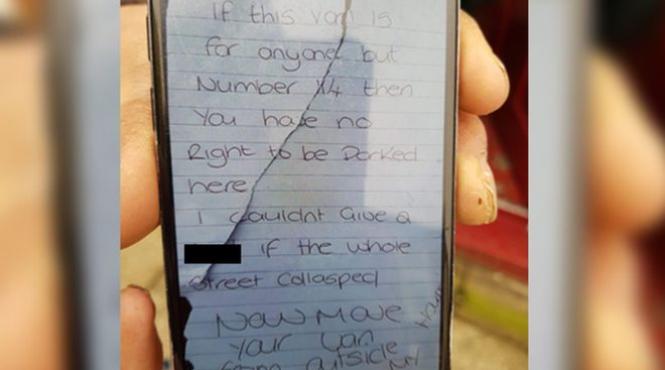 If this van is
for anyone but
Number 14 then
You have no
Right to be Parked
here
I couldnt Give a
if the whole
Street Collasped
Now Move
Your Van
from outside
MY